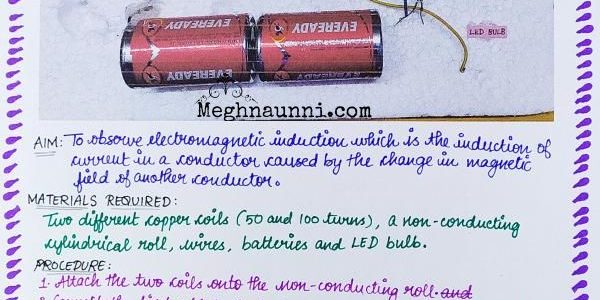 EVEREADY
EVEREADY
EVEREADY
EVEREADY
LED BULB
Meghnaunni.com
AIM: To observe electromagnetic induction which is the induction of
current in a conductor caused by the change in magnetic
field of another conductor.
MATERIALS REQUIRED:
Two different copper coils (50 and 100 turns), a non-conducting
cylindrical roll, wires, batteries and LED bulb.
PROCEDURE:
1. Attach the two coils onto the non-conducting roll. and